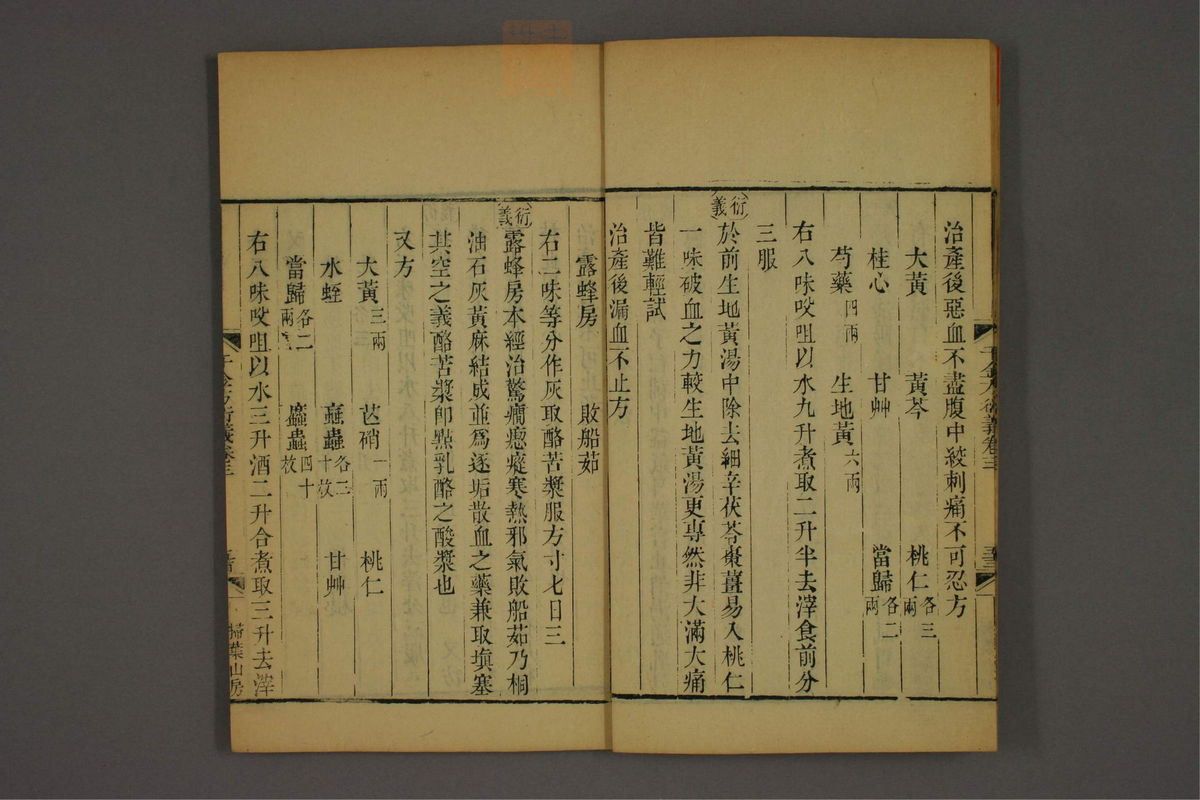 治產後惡血不盡腹中絞刺痛不可忍方
大黃　黃芩　桃仁各三兩
桂心　甘艸　當歸各二兩
芍藥四兩　生地黃六兩
右八味㕮咀以水九升煮取二升半去滓食前分
三服
衍義
於前生地黃湯中除去細辛茯苓棗薑易入桃仁
一味破血之力較生地黃湯更專然非大滿大痛
皆難輕試
治產後漏血不止方
露蜂房　敗船茹
右二味等分作灰取酪苦漿服方寸七日三
衍義
露蜂房本經治驚癇瘛瘲寒熱邪氣敗船茹乃桐
油石灰黃麻結成並為逐垢散血之藥兼取塡塞
其空之義酪苦漿卽點乳酪之酸漿也
又方
大黃三兩　芒硝一兩　桃仁
水蛭　䗪蟲各三十枚　甘艸
當歸各二兩　䗪蟲四十枚
右八味㕮咀以水三升酒二升合煮取三升去滓
千金方衍義卷三
掃葉山房